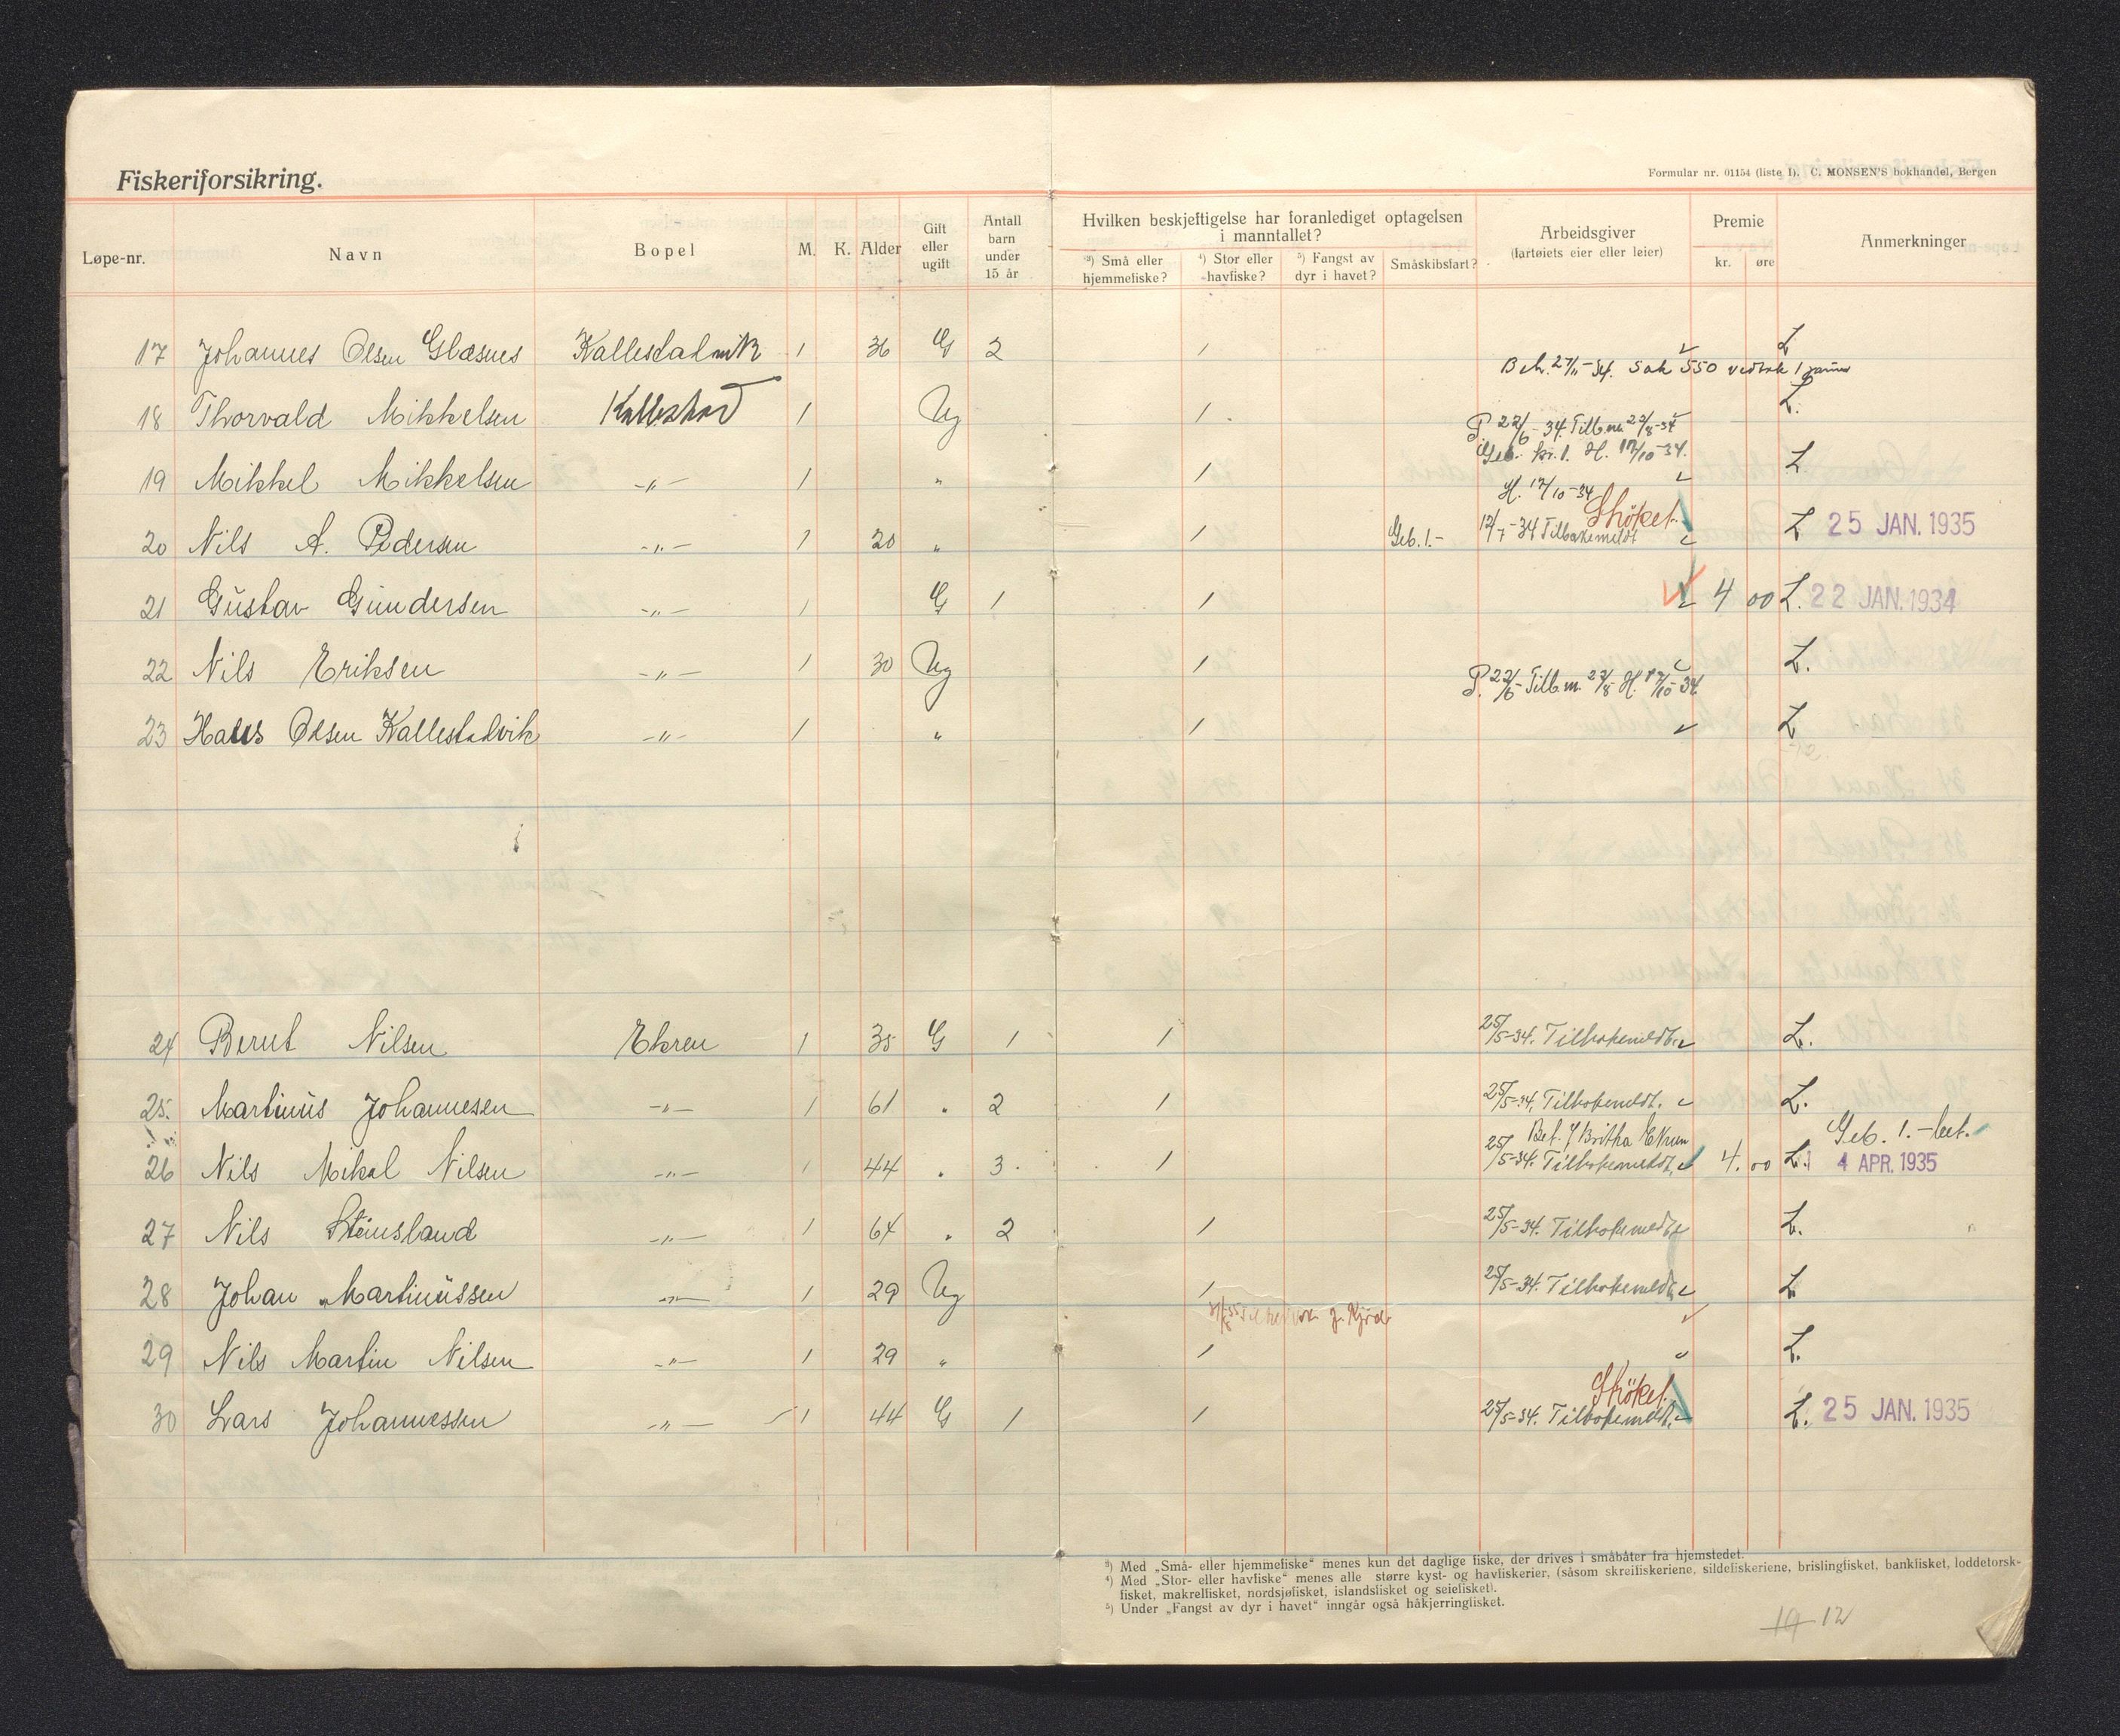 Fiskeriforsikring.
Formular nr. 01154 (liste I). C. MONSEN'S bokhandel, Bergen
Løpe-nr. Navn Bopel M. K. Alder Gift eller ugift Antall barn under 15 år Hvilken beskjeftigelse har foranlediget optagelsen i manntallet? ³) Små eller hjemmefiske? ⁴) Stor eller havfiske? ⁵) Fangst av dyr i havet? Småskibsfart? Arbeidsgiver (fartøiets eier eller leier) Premie kr. øre Anmerkninger
17 Johannes Olsen Glæsnes Kallestadvik 1 36 G 2 1 L
Beh. 27/11-34. Sak 550
18 Thorvald Mikkelsen Kallestad 1 Ug 1 L.
P. 22/6-34. Tilb.m. 27/8-34
Geb. kr. 1. H. 17/10-34.
19 Mikkel Mikkelsen -"- 1 " 1 L
H. 17/10-34
Strøket
20 Nils A. Pedersen -"- 1 20 " 1 Geb. 1.- 12/7-34 Tilbakemeldt L 25 JAN. 1935
21 Gustav Gundersen -"- 1 G 1 1 4 00 L. 22 JAN. 1934
22 Nils Eriksen -"- 1 30 Ug 1 L.
P. 22/6- Tilb.m. 27/8 H. 17/10-34
23 Hans Olsen Kallestadvik -"- 1 " 1 L
24 Bernt Nilsen Ekren 1 35 G 1 1 25/5-34. Tilbakemeldt L.
25. Martinus Johannesen -"- 1 61 " 2 1 25/5-34. Tilbakemeldt. L.
Bet. f Britha Ekren Geb. 1.- bet.
26 Nils Mikal Nilsen -"- 1 44 " 3 1 25/5-34. Tilbakemeldt. 4. 00 L. 4 APR. 1935
27 Nils Steinsland -"- 1 64 " 2 1 25/5-34. Tilbakemeldt L.
28 Johan Martinussen -"- 1 29 Ug 1 25/5-34. Tilbakemeldt L
29 Nils Martin Nilsen -"- 1 29 " 1 L.
Strøket
30 Lars Johannessen -"- 1 44 G 1 1 25/5-34. Tilbakemeldt. L. 25 JAN. 1935
³) Med „Små- eller hjemmefiske" menes kun det daglige fiske, der drives i småbåter fra hjemstedet.
⁴) Med „Stor- eller havfiske" menes alle større kyst- og havfiskerier, (såsom skreifiskeriene, sildefiskeriene, brislingfisket, bankfisket, loddetorsk-
fisket, makrellfisket, nordsjøfisket, islandsfisket og seiefisket).
⁵) Under „Fangst av dyr i havet" inngår også håkjerringfisket.
19 12